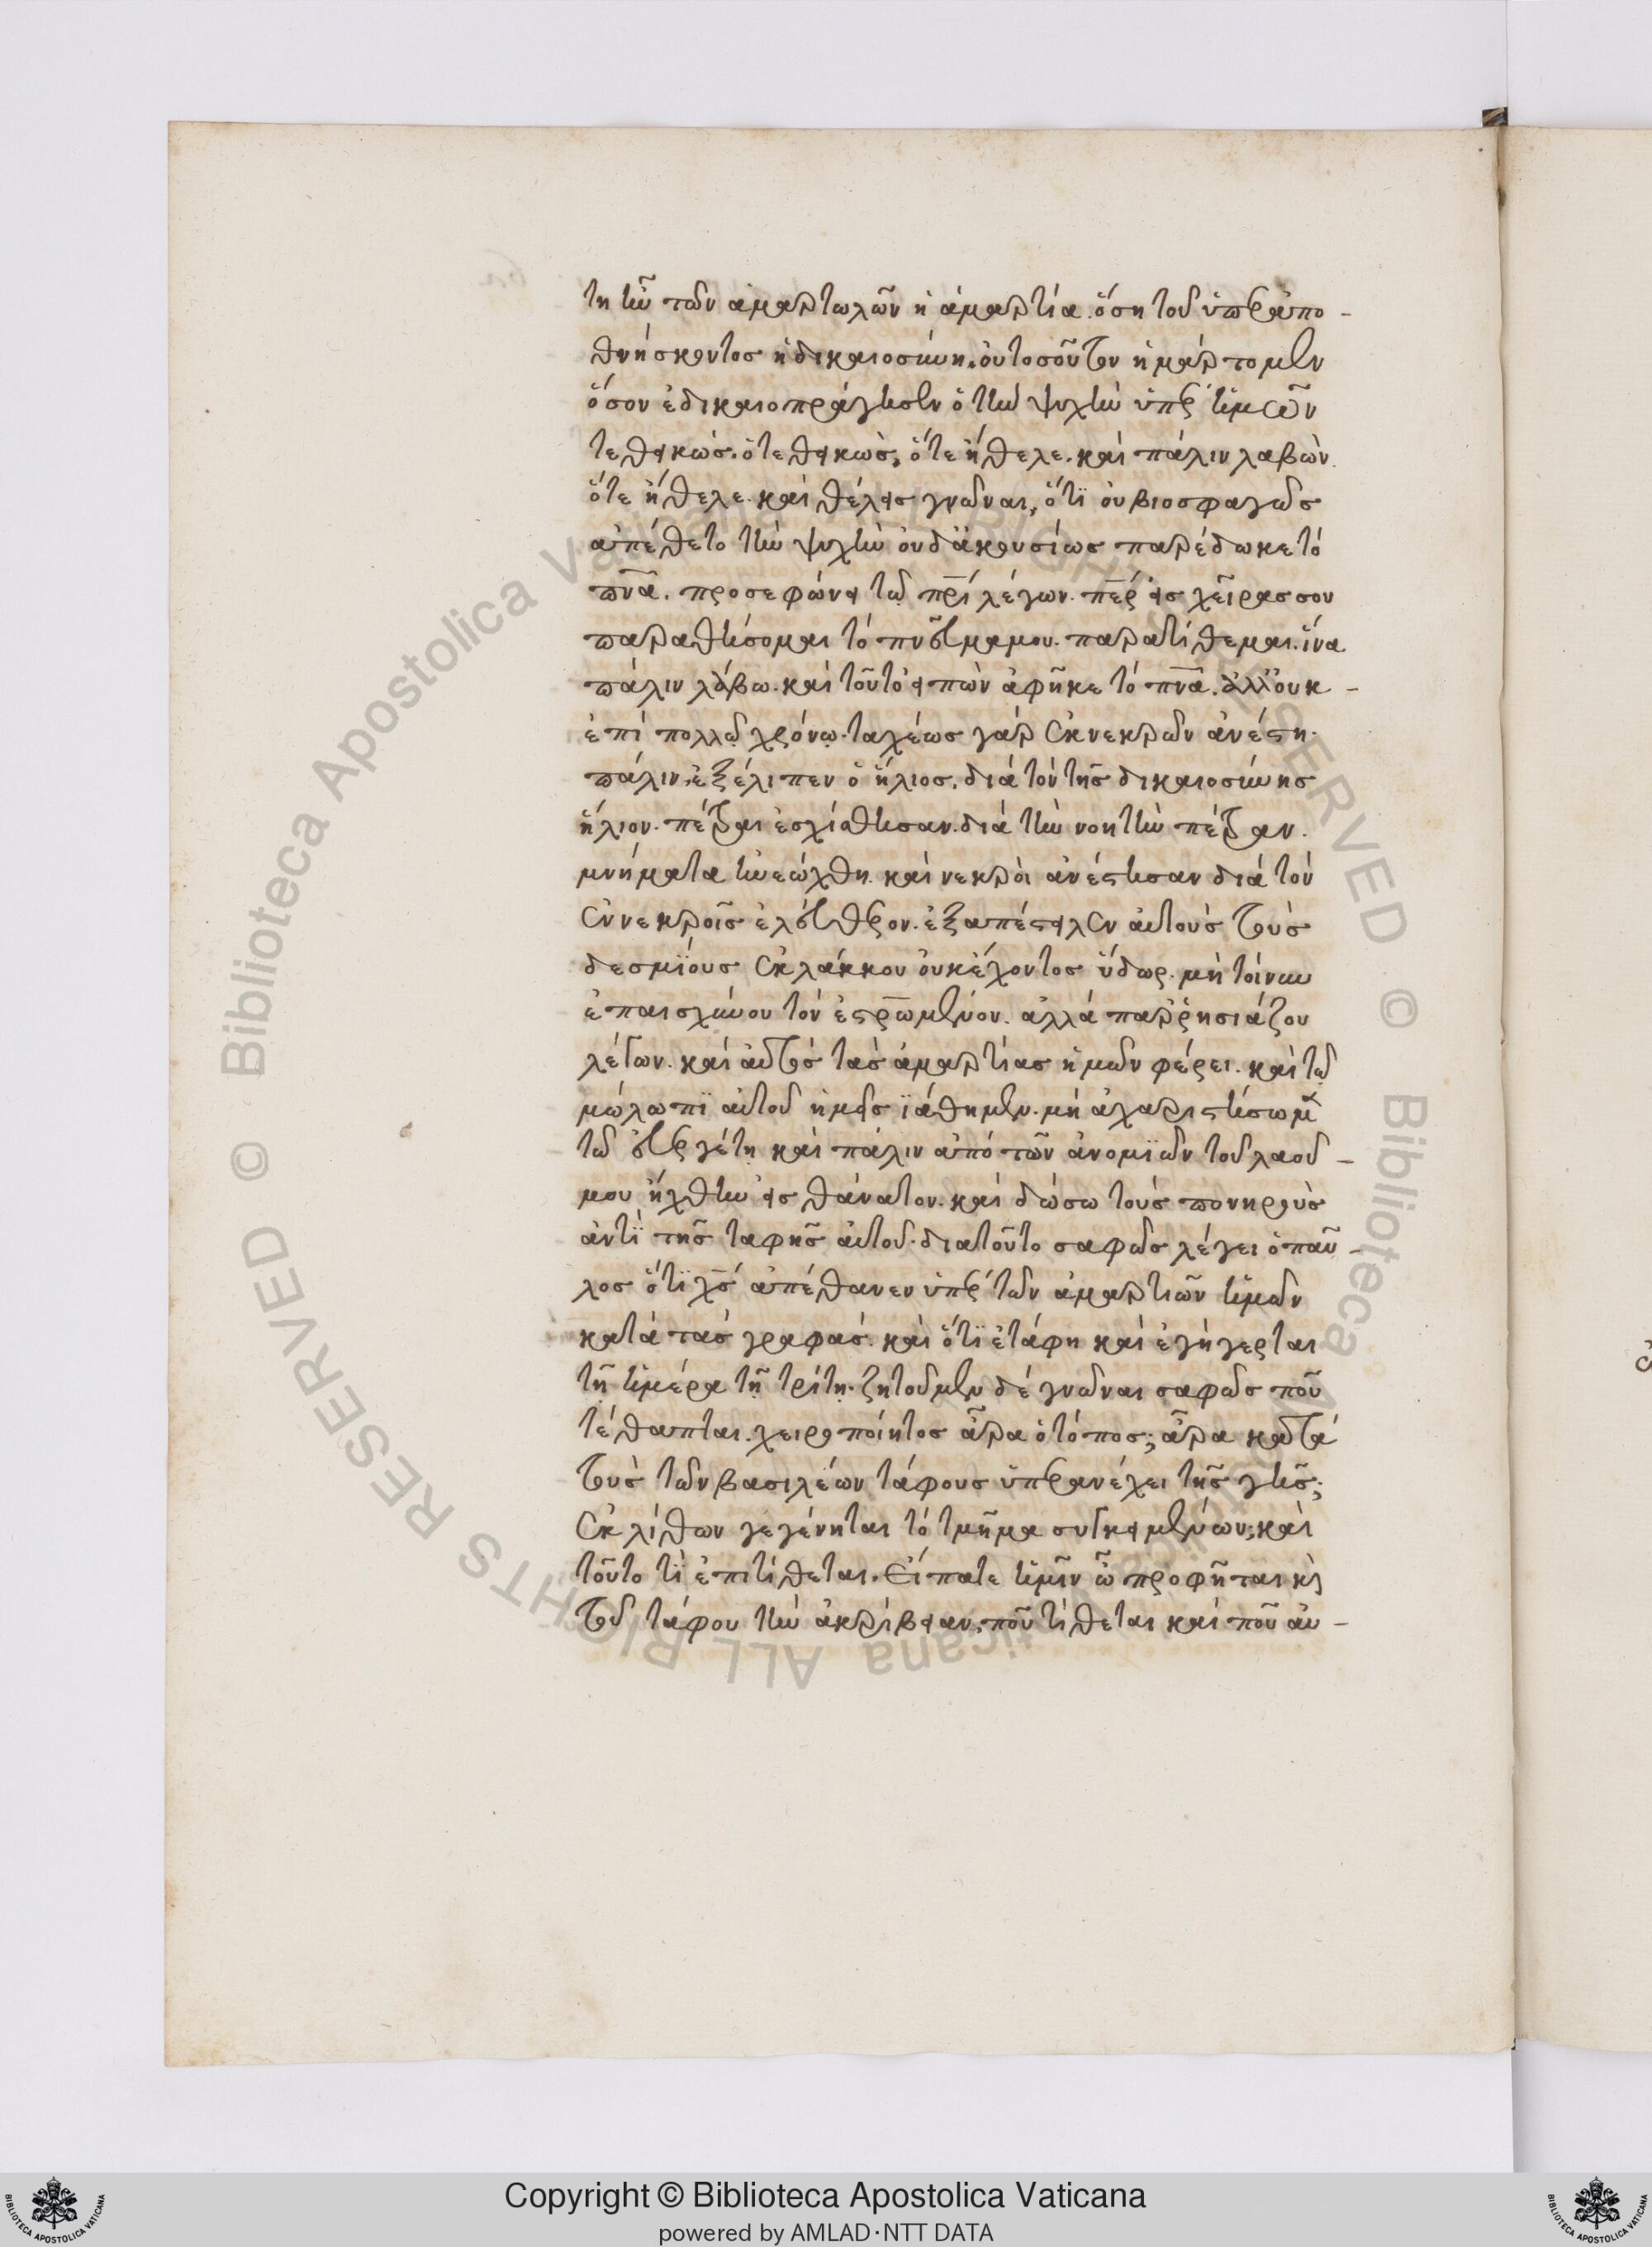 τη ἦν τῶν ἁμαρτωλῶν ἡ ἁμαρτία. ὅση τοῦ ὑπεραπο-
θνήσκοντος ἡ δικαιοσύνη. οὐ τοσοῦτον ἡμάρτομεν
ὅσον ἐδικαιοπράγησεν ὁ τὴν ψυχὴν ὑπὲρ ἡμῶν
τεθεικώς. ὁ τεθεικὼς, ὅτε ἤθελε. καὶ πάλιν λαβὼν.
ὅτε ἤθελε. καὶ θέλεις γνῶναι, ὅτϊ οὐ βιοσφαγῶς
ἀπέθετο τὴν ψυχὴν οὐδ' ἀκουσίως παρέδωκε τό
πνα. προσεφώνει τῷ πρί λέγων. περ εἰς χεῖρας σου
παραθήσομαι τό πνεῦμα μου. παρατίθεμαι. ἵνα
πάλιν λάβω. καὶ τοῦτο εἰπὼν ἀφῆκε τό πνα. ἀλλ' οὐκ-
ἐπὶ πολλῷ χρόνῳ. ταχέως γάρ ἐκ νεκρῶν ἀνέστη.
πάλιν. ἐξέλιπεν ὁ ἥλιος. διά τόν τῆς δικαιοσύνης
ἥλιον. πέτραι ἐσχίσθησαν. διά τὴν νοητὴν πέτραν.
μνήματα ἠνεώχθη. καί νεκροὶ ἀνέστησαν διά τόν
ἐν νεκροῖς ἐλεύθερον. ἐξαπέστειλεν αὐτοὺς τοὺς
δεσμϊους ἐκ λάκκου οὐκ ἔχοντος ὕδωρ. μὴ τοίνυν
ἐπαισχύνου τόν ἐσρωμένον. ἀλλά παῤῥησιάζου
λέγων. καί αὐτός τὰς ἁμαρτίας ἡμῶν φέρει. καὶ τῷ
μώλωπϊ αὐτοῦ ἡμεῖς ϊάθημεν. μή ἀχαριστήσωμ
τῷ εὐεργέτη καὶ πάλιν ἀπό τῶν ἀνομιῶν τοῦ λαοῦ-
μου ἤχθην εἰς θάνατον. καὶ δώσω τούς πονηρούς
ἀντϊ τῆς ταφῆς αὐτοῦ. διατοῦτο σαφῶς λέγει ὁ παῦ-
λος ὅτϊ χς ἀπέθανεν ὑπέρ τῶν ἁμαρτιῶν ἡμῶν
κατά τάς γραφάς. καὶ ὅτϊ ἐτάφη καὶ ἐγήγερται
τῆ ἡμέρα τῆ τρίτη. ζητοῦμεν δέ γνῶναι σαφῶς ποῦ
τέθαπται. χειροποίητος ἆρα ὁ τόπος; ἆρα κατά
τοὺς τῶν βασιλέων τάφους ὑπερανέχει τῆς γῆς;
ἐκ λίθων γεγένηται τό τμῆμα συγκειμένων; καὶ
τοῦτο τϊ ἐπιτίθεται. Εἴπατε ἡμῖν ὦ προφῆται κὶ
τοῦ τάφου τὴν ἀκρίβειαν, ποῦ τίθεται καὶ ποῦ αὐ-
© Biblioteca Apostolica Vaticana ALL RIGHTS RESERVED © Biblioteca Apostolica Vaticana ALL RIGHTS RESERVED
Copyright © Biblioteca Apostolica Vaticana
powered by AMLAD·NTT DATA